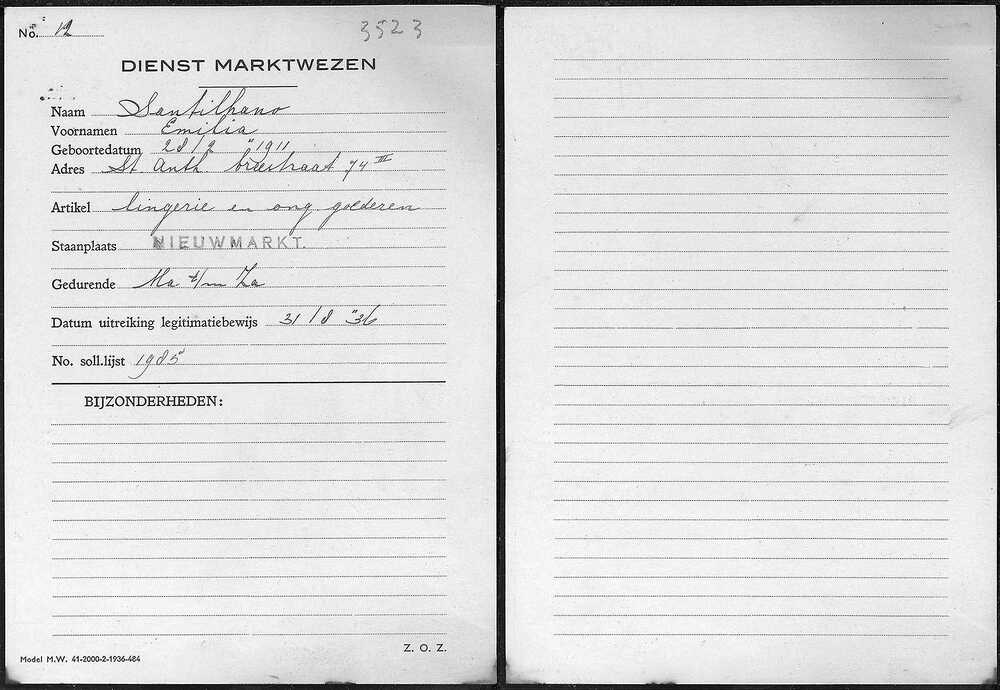 No. 12
3523
DIENST MARKTWEZEN
Naam Santilhano
Voornamen Emilia
Geboortedatum 28/2 "1911
Adres St. Anth. breestraat 74 III
Artikel lingerie en ong. goederen
Staanplaats NIEUWMARKT.
Gedurende Ma t/m Za
Datum uitreiking legitimatiebewijs 31/8 "36
No. soll.lijst 1985
BIJZONDERHEDEN:
Z. O. Z.
Model M.W. 41-2000-2-1936-484